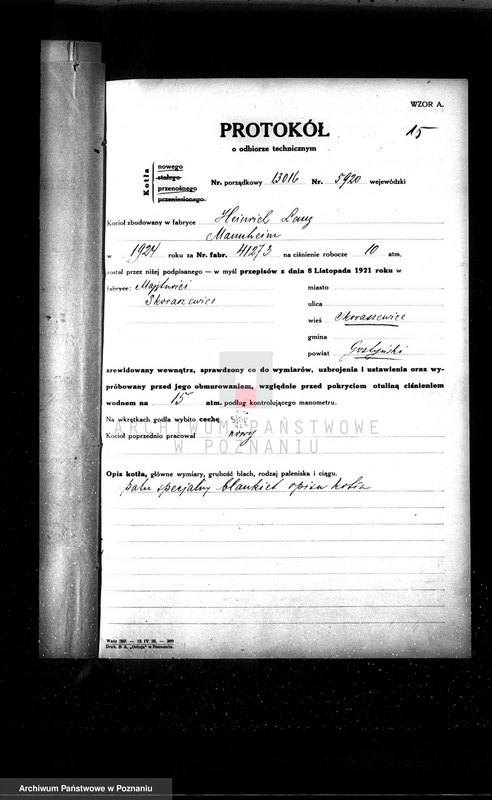 WZOR A.
PROTOKÓŁ
15
o odbiorze technicznym
Kotła
nowego
stałego
przenośnego
przeniesionego
Nr. porządkowy 13016 Nr. 5920 wojewódzki
Kocioł zbudowany w fabryce Heinrich Lanz
Mannheim
w 1924 roku za Nr. fabr. 41273 na ciśnienie robocze 10 atm.
został przez niżej podpisanego — w myśl przepisów z dnia 8 Listopada 1921 roku w
fabryce: Majętności
Skoraszewice
miasto
ulica
wieś Skoraszewice
gmina
powiat Gostyński
zrewidowany wewnątrz, sprawdzony co do wymiarów, uzbrojenia i ustawienia oraz wy-
próbowany przed jego obmurowaniem, względnie przed pokryciem otuliną ciśnieniem
wodnem na 15 atm. podług kontrolującego manometru.
Na wkrętkach godła wybito cechę
Kocioł poprzednio pracował nowy
ARCHIWUM PAŃSTWOWE
W POZNANIU
Opis kotła, główne wymiary, grubość blach, rodzaj paleniska i ciągu.
patrz specjalny blankiet opisu kotła
Wzór 260. — 13 IV 26. — 300
Druk. S. A. „Ostoja" w Poznaniu.
Archiwum Państwowe w Poznaniu